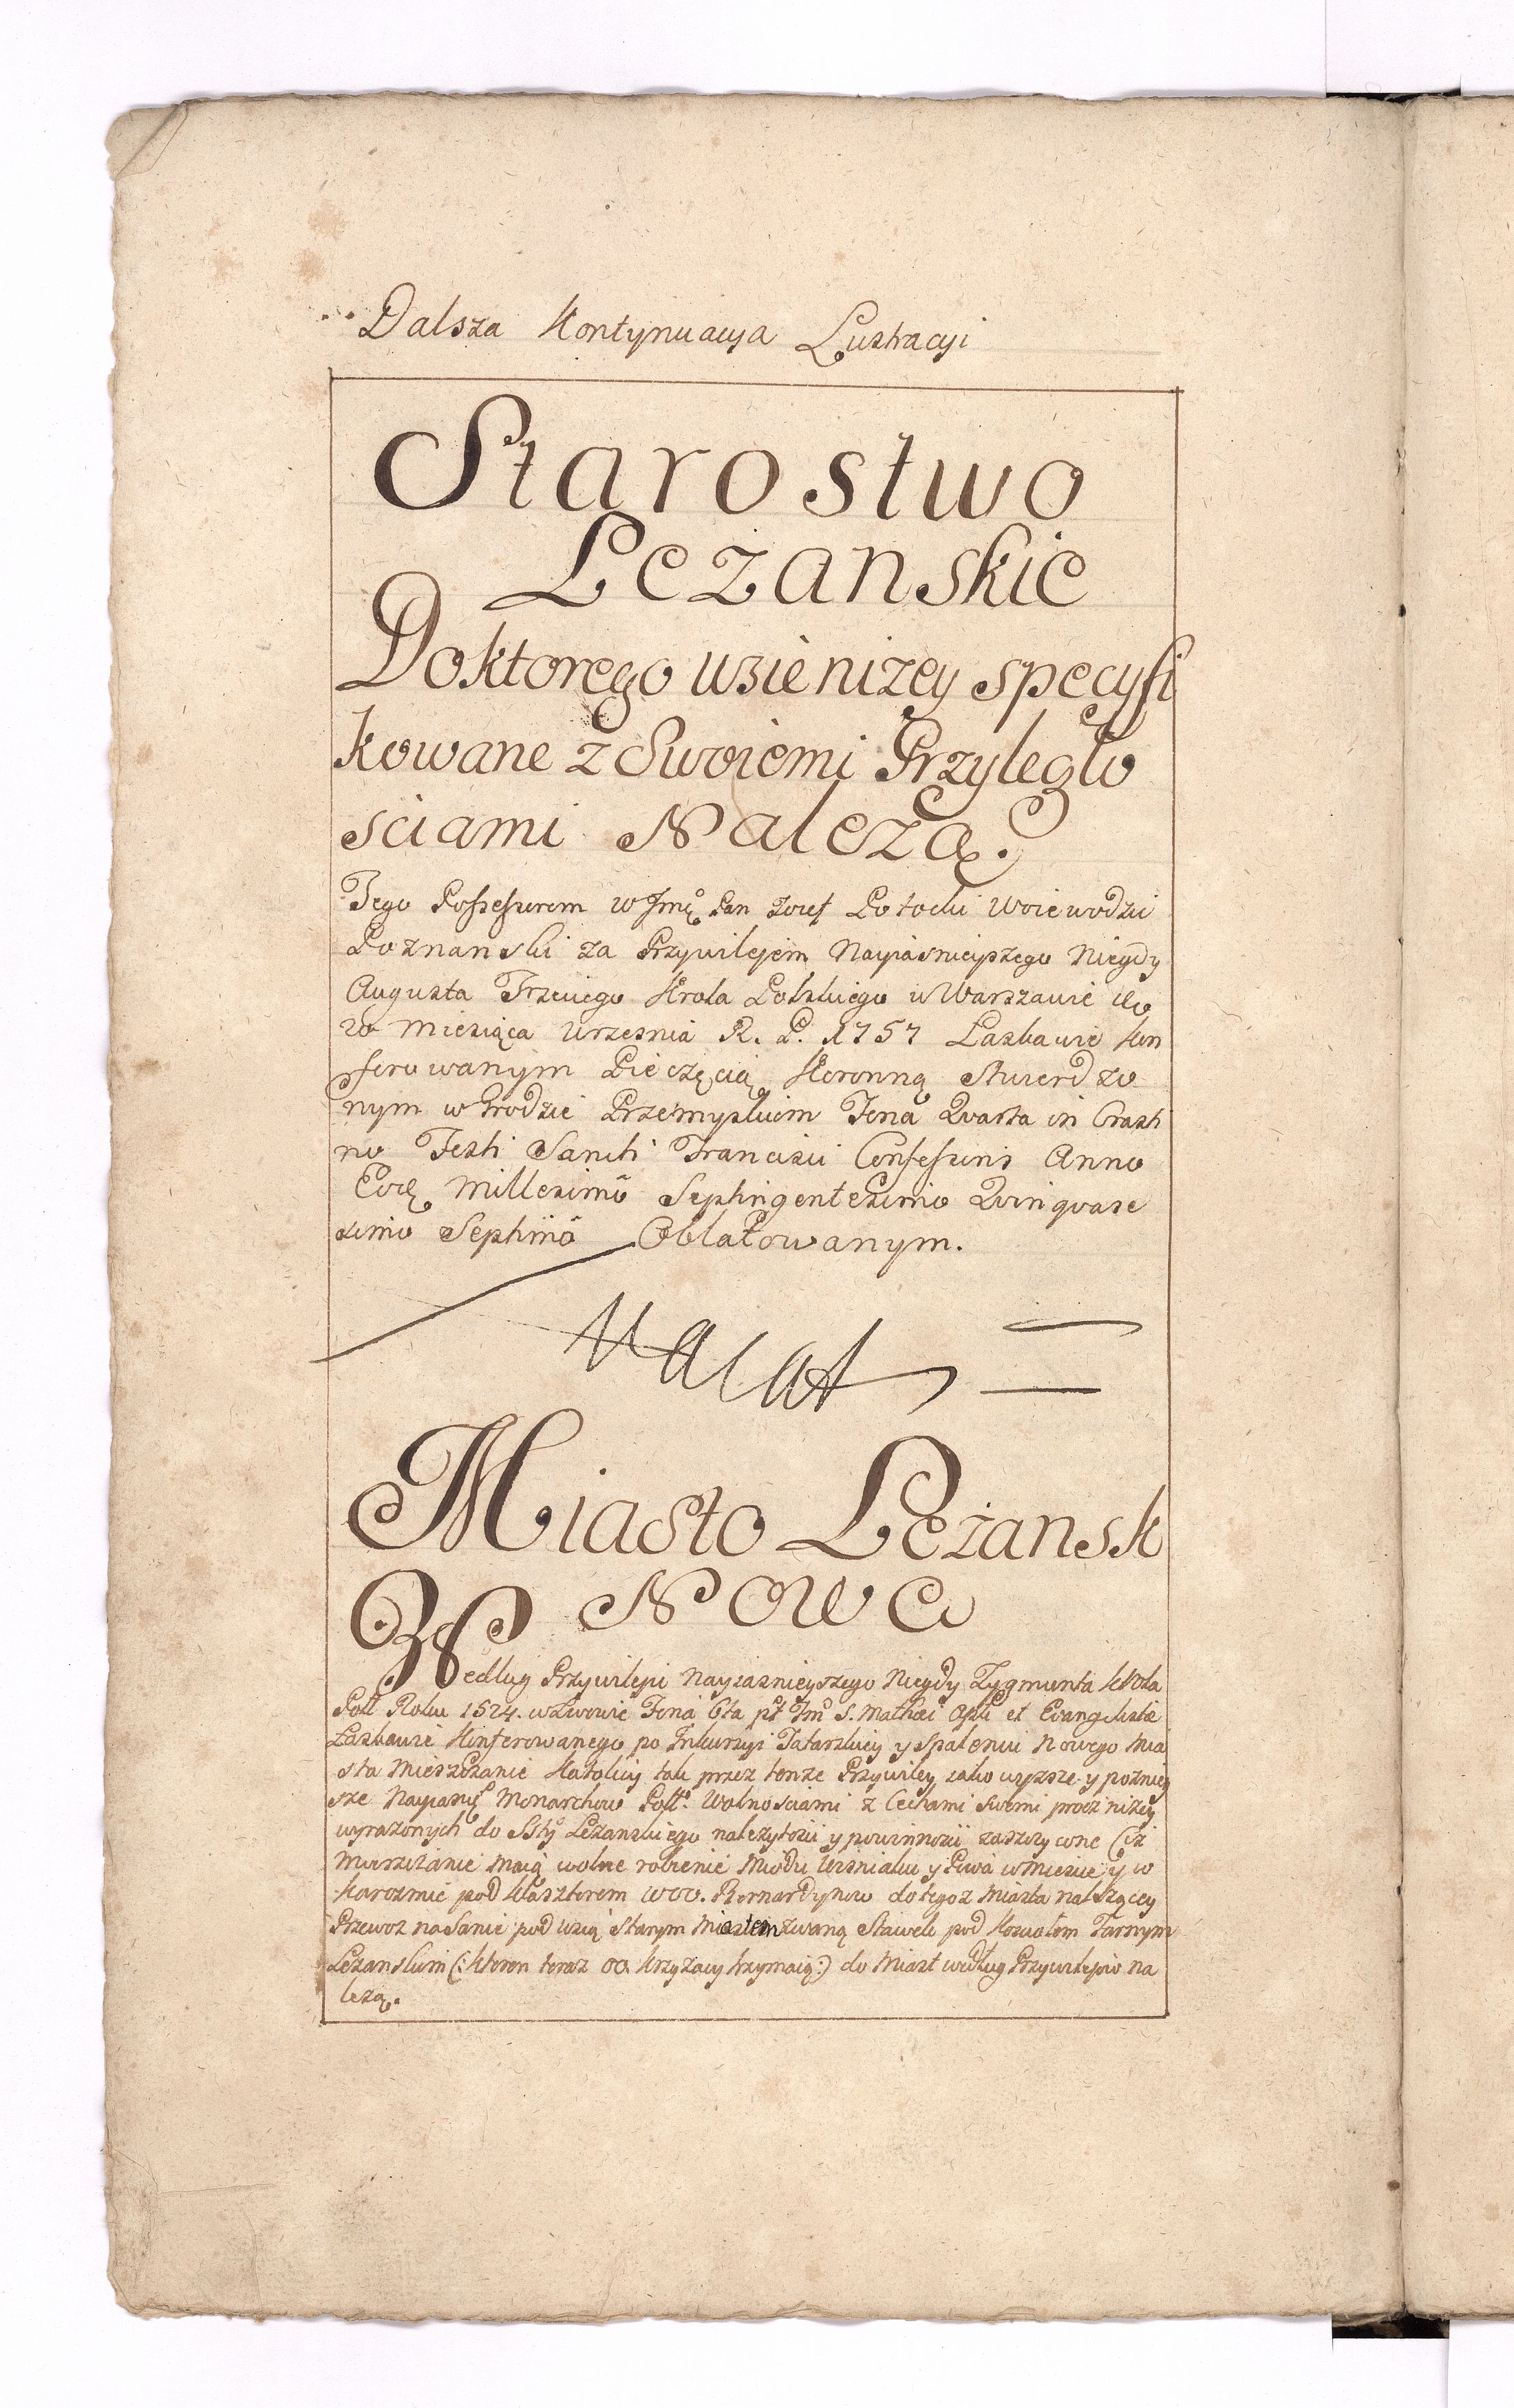 Dalsza Kontynuacya Lustracyi
Starostwo
Leżanskie
Doktorego wsie niżey specyfi
kowane z Swoiemi Przyległo
sciami Należą.
Tego Possessorem W Jmć Pan Jozef Potocki Woiewodzic
Poznanski za Przywilejem Nayiasnieyszego Niegdy
Augusta Trzeciego Krola Polskiego w Warszawie
20 Miesiąca Wrzesnia R. P. 1757 Łaskawie kon
ferowanym Pieczęcią Koronną Stwierdzo
nym w Grodzie Przemyskim Feria Qvarta in Crasti
no Festi Sancti Francisci Confessoris Anno
Millesimo Septingentesimo Qvinqvage
simo Septimo Oblatowanym.
Vacat
Miasto Leżansk
Nowe
Według Przywileju Nayiasnieyszego Niegdy Zygmunta Krola
Poll Roku 1524. w Lwowie Feria 6ta S. Mathæi Apli et Evangelistæ
Łaskawie Konferowanego po Inkursyi Tatarskiey y spaleniu Nowego Mia
sta Mieszczanie Katolicy tak przez tenże Przywiley iako wyższe y pozniey
sze Monarchow Poll. Wolnosciami z Cechami swemi procz niżey
wyrażonych do Leżanskiego należytosci y powinnosci zaszczycone (iż
Mieszczanie Maią wolne robienie Miodu Wisniaku y Piwa w Miescie y w
Karczmie pod Klasztorem WOO. Bernardynow do tegoż Miasta należącey
Przewoz na Sanie pod wsią Starym Miastem zwaną Stawek pod Kosciołem Farnym
Leżanskim (: kteren teraz OO krzyżacy trzymaią:) do Miast według Przywilejow na
leżą.